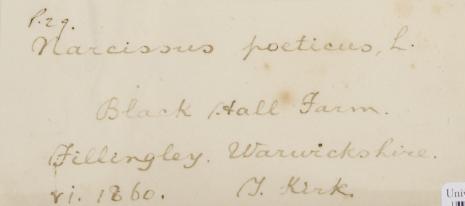 P. 29.
Narcissus poeticus, L.
Black Hall Farm.
Fillingley. Warwickshire.
vi. 1860. T. Kirk.
Univ